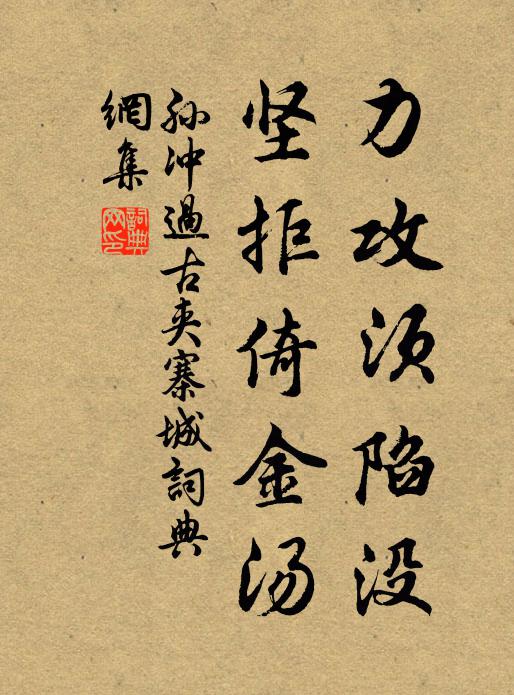 力攻须陷没
坚拒倚金汤
孙冲過古夹寨城詞典
網集
詞典
网印